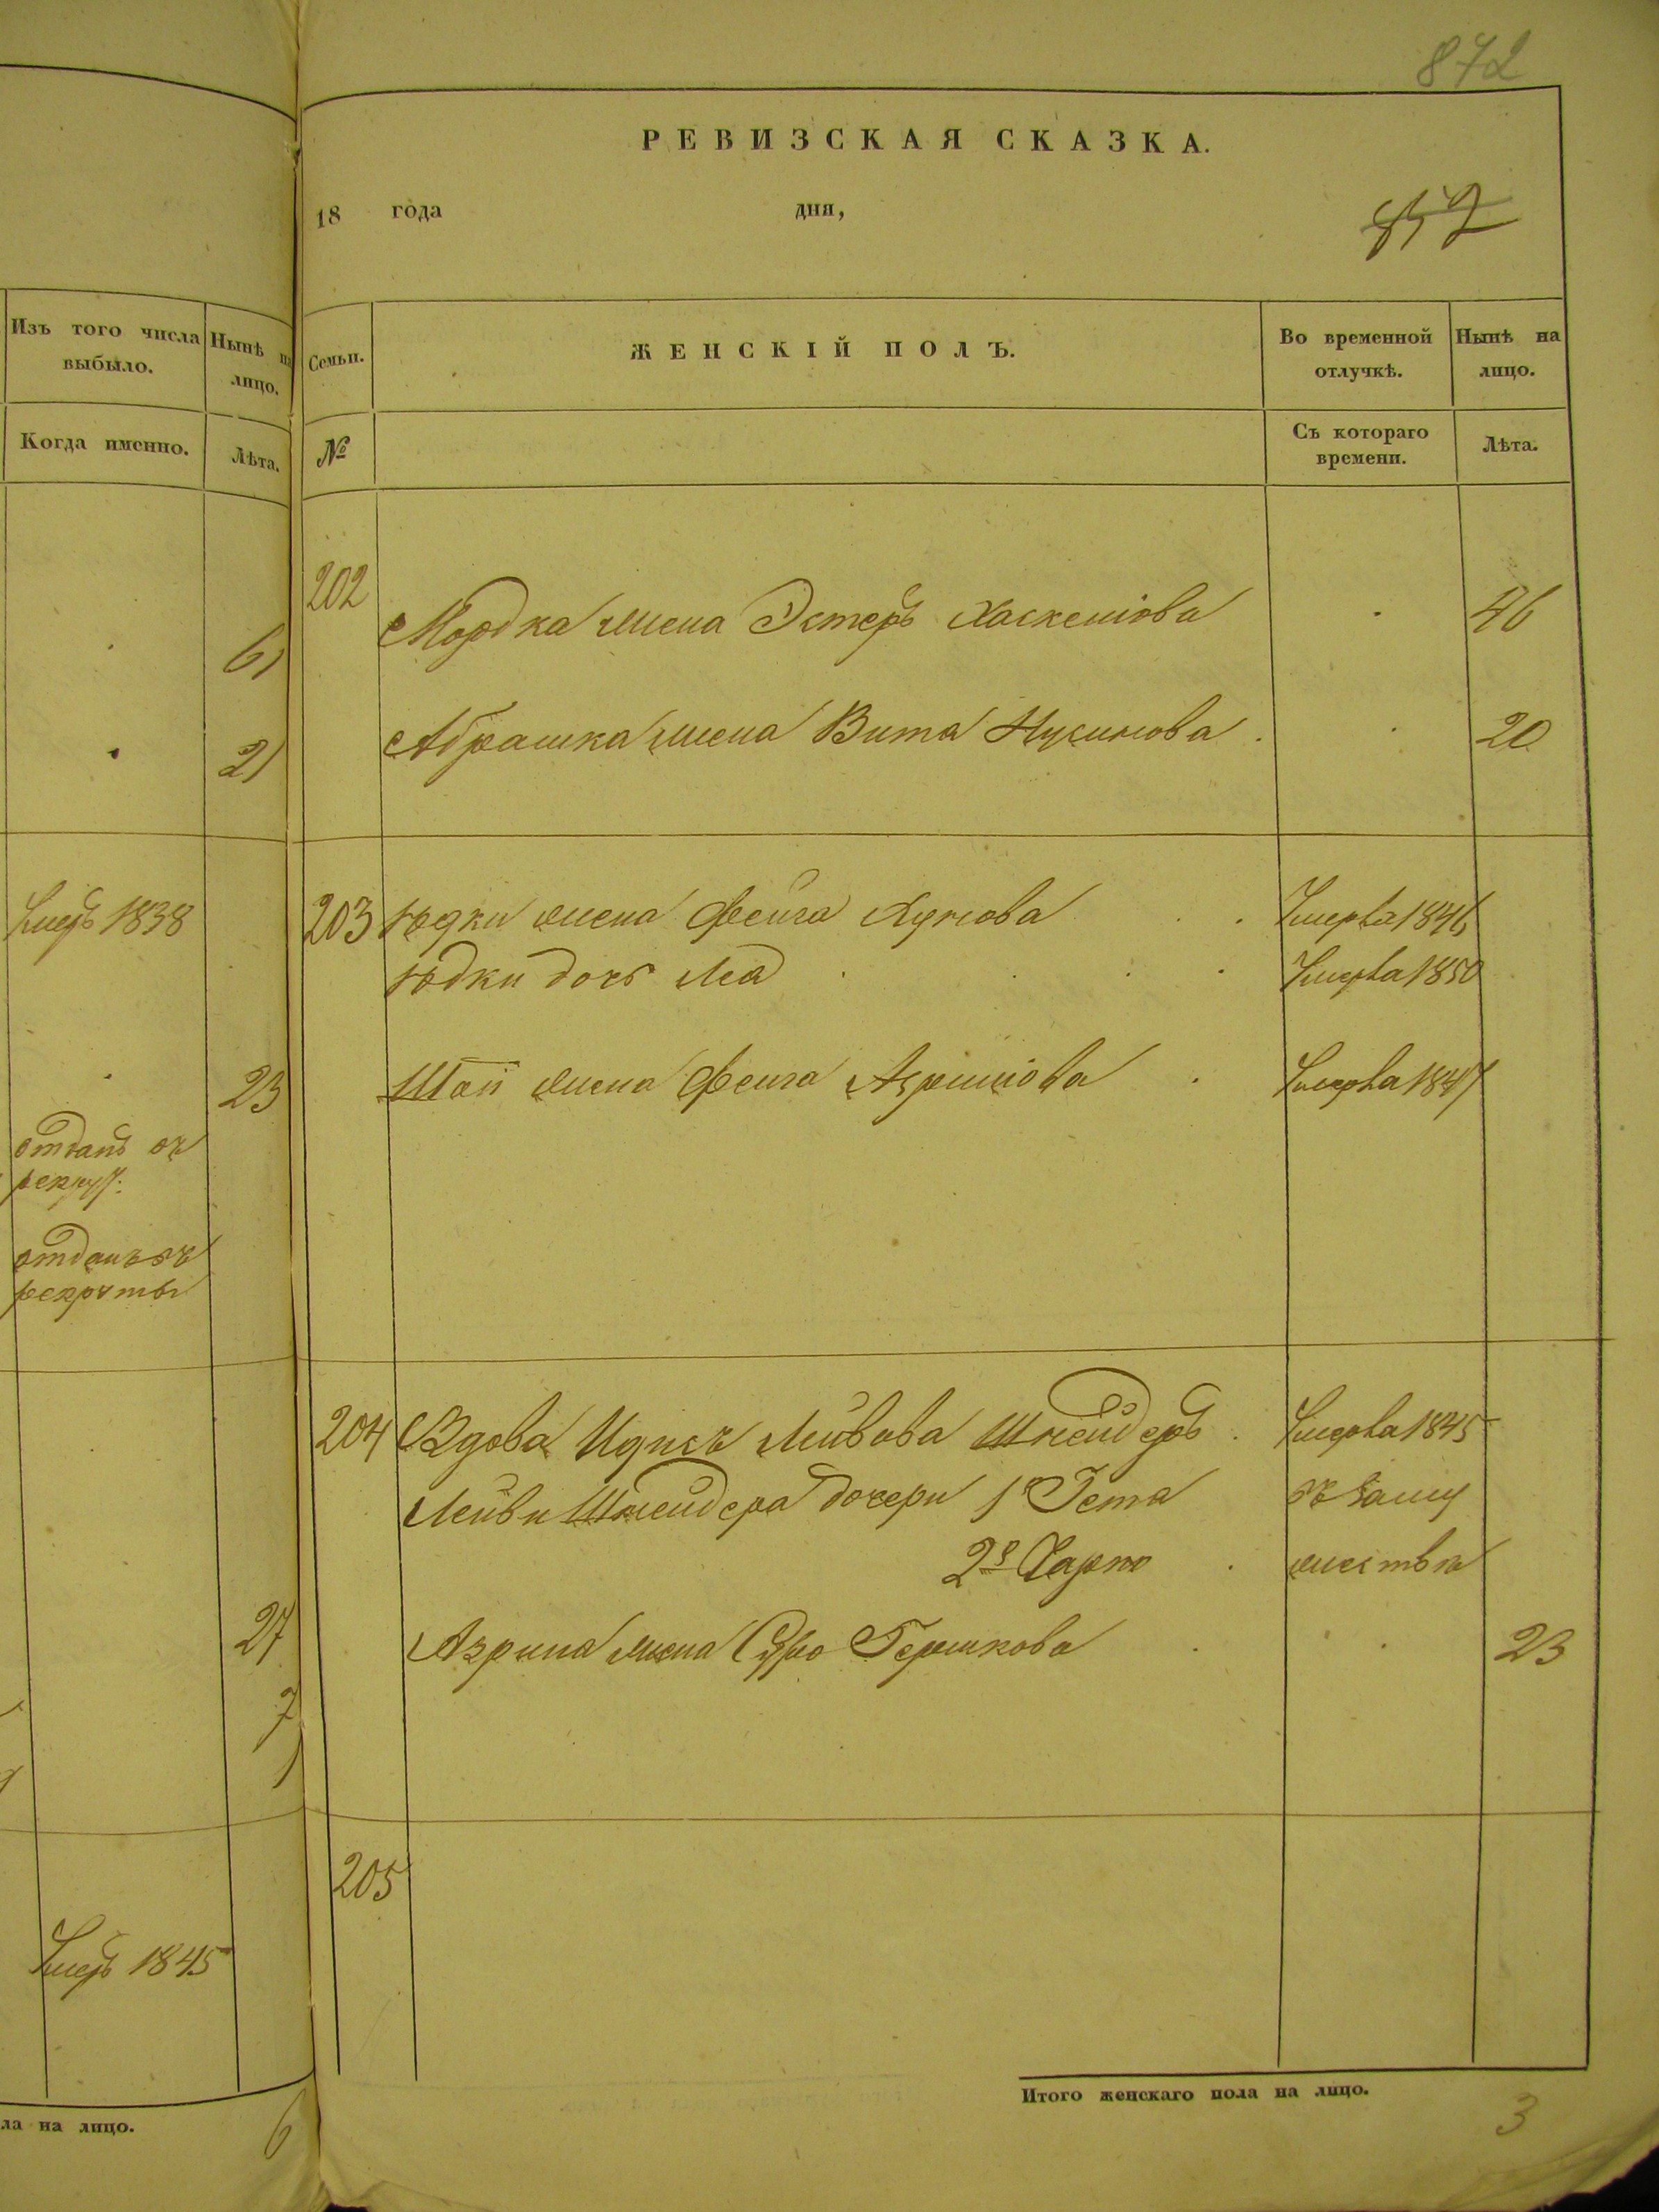 872
РЕВИЗСКАЯ СКАЗКА.
18 года дня,
857
Изъ того числа выбыло.
Нынѣ на лицо.
Когда именно.
Лѣта.
61
21
Умеръ 1838
23
отданъ въ
рекрут:
отданъ въ
рекруты
27
7
1
Умеръ 1845
ла на лицо.
6
Семьи.
ЖЕНСКІЙ ПОЛЪ.
Во временной отлучкѣ.
Нынѣ на лицо.
№
Съ котораго времени.
Лѣта.
202
Мордка жена Эстеръ Хаскелiова 46
Абрашка жена Вита Нусимова 20
203 Юдки жена Фейга Умерла 1846
Юдки дочь Леа Умерла 1850
Шаи жена Фейга Умерла 1847
204 Вдова Лейбова Шнейдеръ Умерла 1845
Лейби Шнейдера дочери 1я въ заму
2я жествѣ
Азрила жена Сура Гершкова 23
205
Итого женскаго пола на лицо.
3